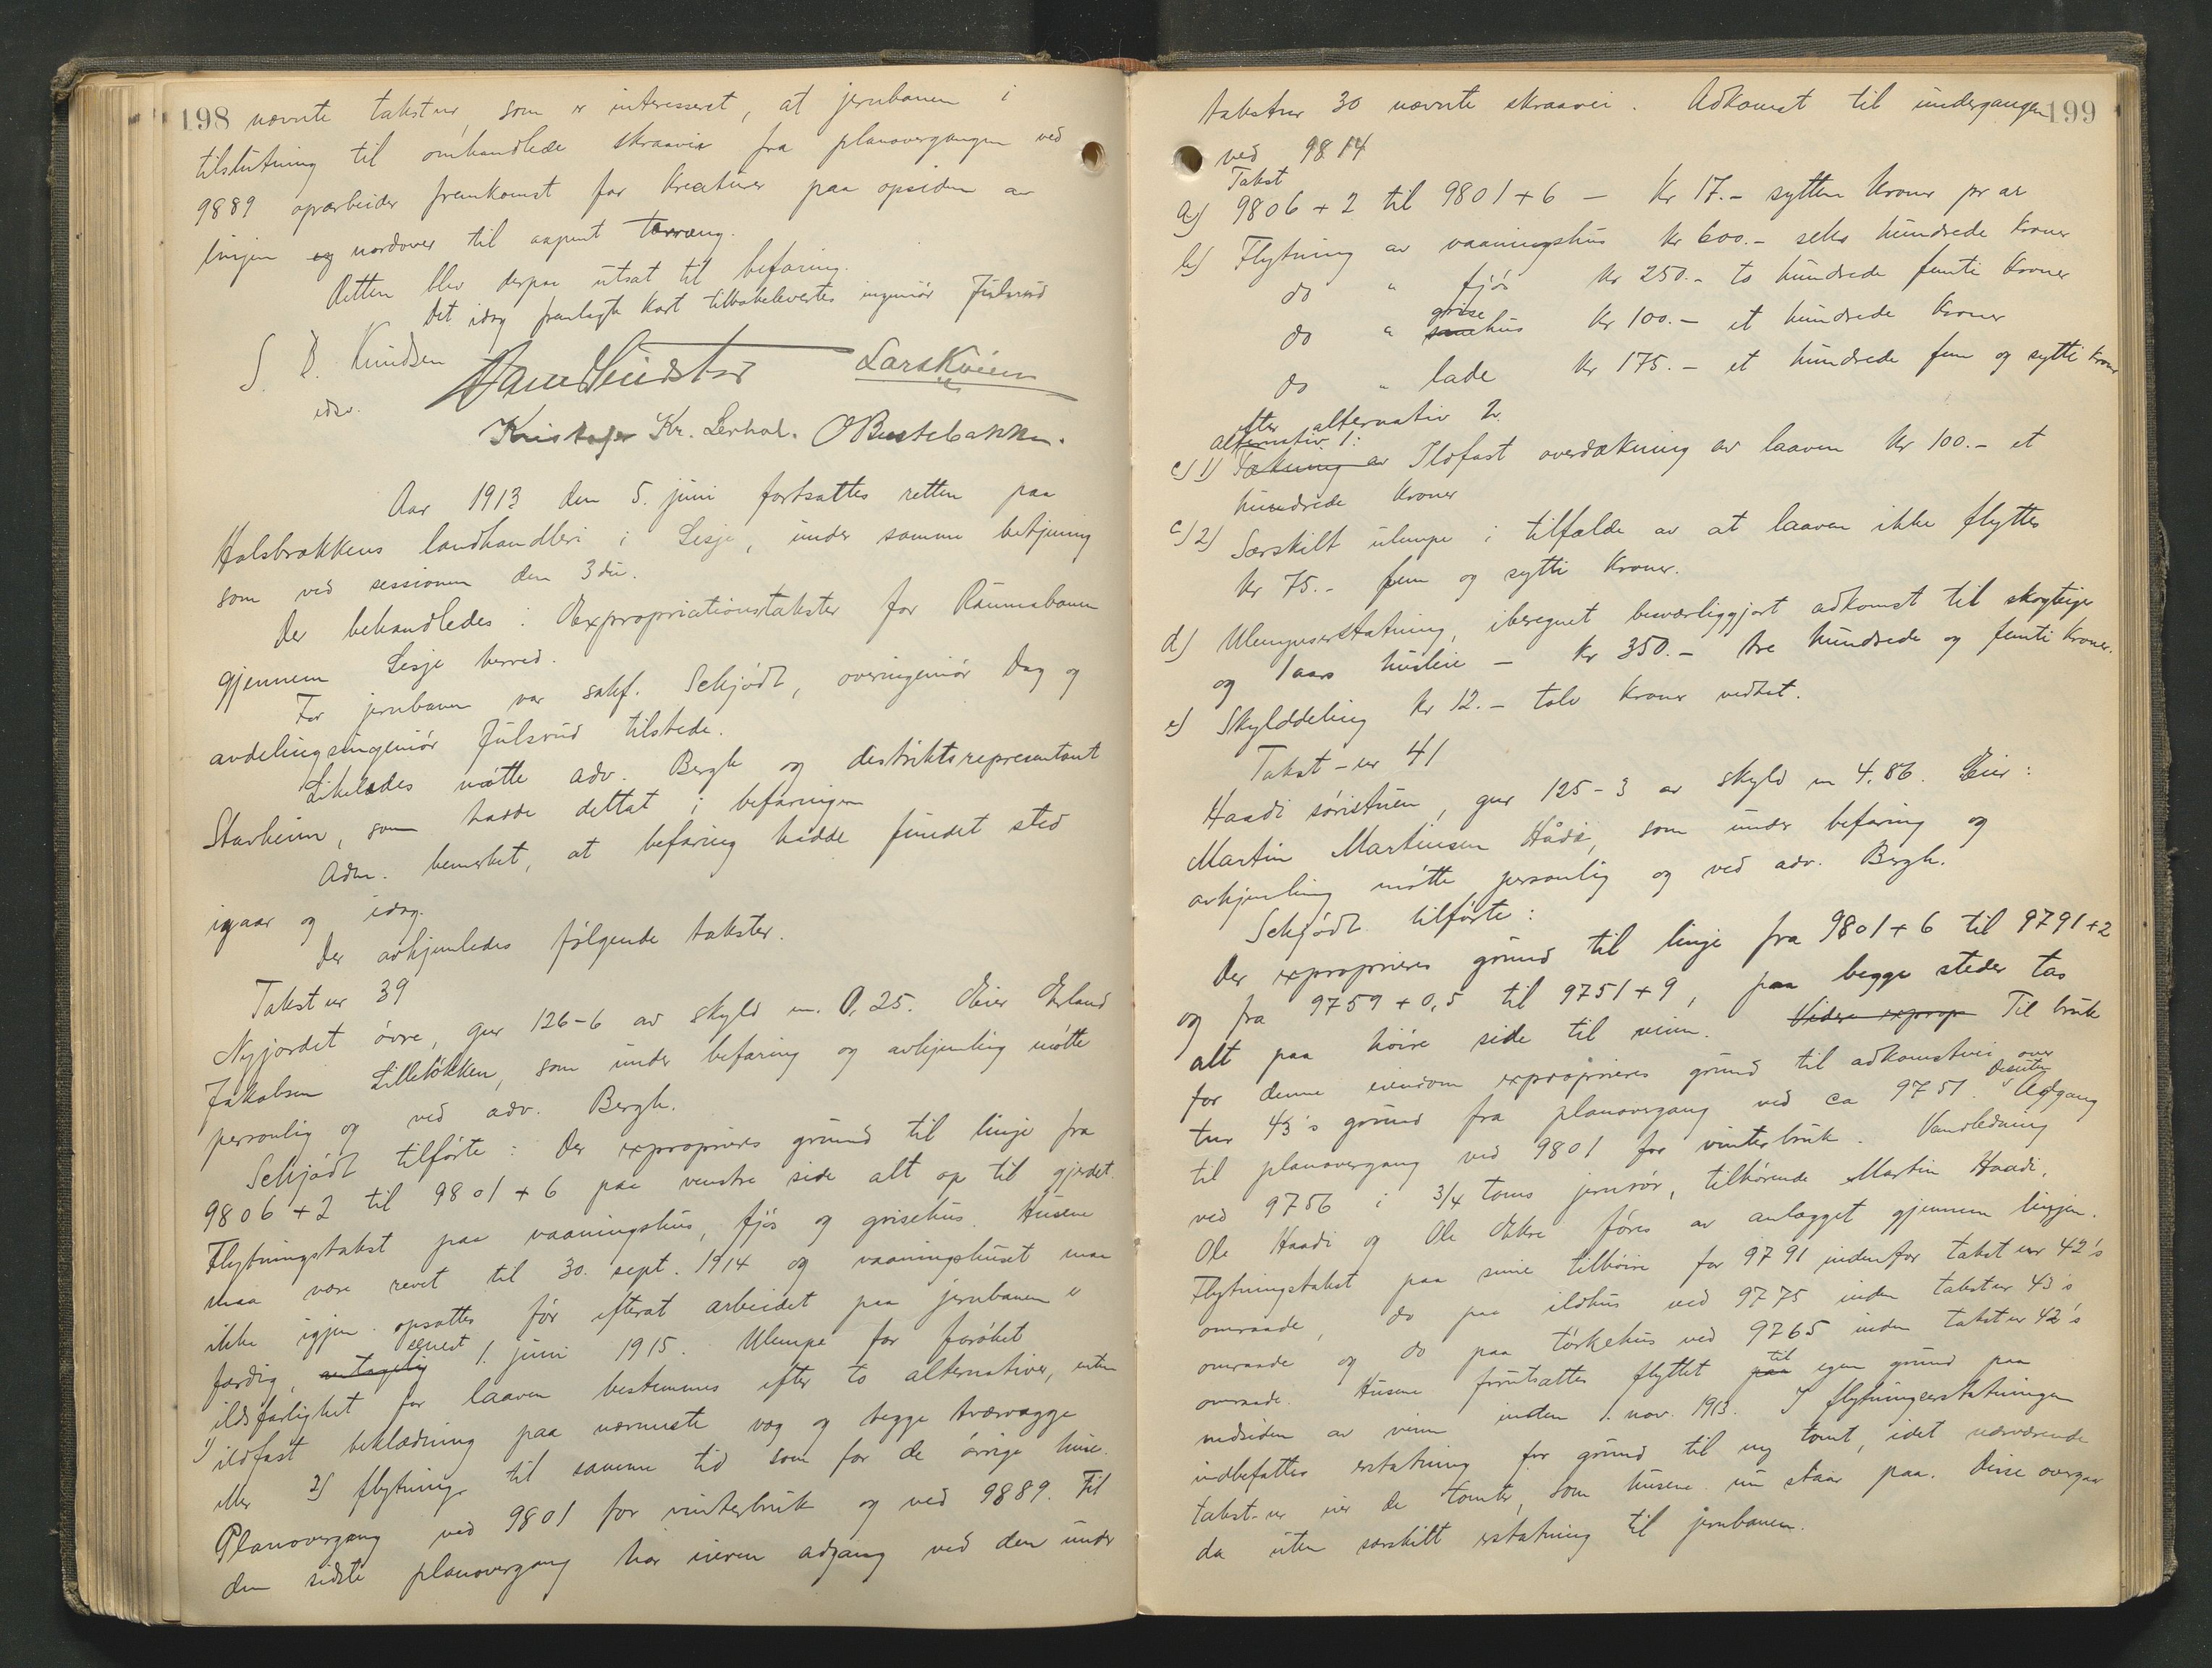 198
nævnte takstnr, som er interesseret, at jernbanen i
tilslutning til omhandlede skraavei fra planovergangen ved
9889 oparbeider fremkomst for kreaturer paa opsiden av
linjen og nordover til aapent terræng.
Retten blev derpaa utsat til befaring.
Det idag fremlagte kart tilbakelevertes ingeniør Julsrud
S. B. Knudsen
Lars Kvien
edsv.
Kristofer Kr. Lerhol. O Bustebakken.
Aar 1913 den 5. juni fortsattes retten paa
Holsbrækkens landhandleri i Lesje, under samme betjening
som ved sessionen den 3die.
Der behandledes: Expropriationstakster for Raumabanen
gjennem Lesje herred.
For jernbanen var sakf. Schjødt, overingeniør Dag og
avdelingsingeniør Julsrud tilstede.
Likeledes møtte adv. Bergh og distriktsrepresentant
Starheim, som hadde deltat i befaringen
Adm. bemerket, at befaring hadde fundet sted
igaar og idag.
Der avhjemledes følgende takster.
Takst nr 39
Nyjordet øvre, gnr 126-6 av skyld m. 0,25. Eier Erland
Jakobsen Lilleløkken, som under befaring og avhjemling møtte
personlig og ved adv. Bergh.
Schjødt tilførte: Der exproprieres grund til linje fra
9806 + 2 til 9801 + 6 paa venstre side alt op til gjerdet.
Flytningstakst paa vaaningshus, fjøs og grisehus. Husene
maa være revet til 30. sept. 1914 og vaaningshuset maa
ikke igjen opsættes før efterat arbeidet paa jernbanen er
færdig, antagelig senest 1. juni 1915. Ulempe for forøket
ildsfarlighet for laaven bestemmes efter to alternativer, enten
1) ildfast beklædning paa nærmeste væg og begge tværvægge
eller 2) flytning til samme tid som for de øvrige huse.
Planovergang ved 9801 for vinterbruk og ved 9889. Til
den sidste planovergang har eieren adgang ved den under
199
takstnr 30 nævnte skraavei. Adkomst til undergangen
ved 9814
Takst
a) 9806 + 2 til 9801 + 6 — Kr 17.- sytten kroner pr ar
b) Flytning av vaaningshus kr 600.- seks hundrede kroner
do " fjøs kr 250.- to hundrede femti kroner
do " grisehus kr 100.- et hundrede kroner
do " lade kr 175.- et hundrede fem og sytti kroner
efter alternativ 2.
Alternativ 1:
c) 1) Tækning av Ildfast overdækning av laaven kr 100.- et
hundrede kroner
c) 2) Særskilt ulempe i tilfælde av at laaven ikke flyttes
kr 75.- fem og sytti kroner.
d) Ulempeserstatning, iberegnet besværliggjort adkomst til skogteiger
og 1 aars husleie - kr 350.- tre hundrede og femti kroner.
e) Skylddeling kr 12.- tolv kroner vedtat.
Takst-nr 41
Haadi søristuen, gnr 125-3 av skyld m 4.86. Eier:
Martin Martinsen Hådi, som under befaring og
avhjemling møtte personlig og ved adv. Bergh.
Schjødt tilførte:
Der exproprieres grund til linje fra 9801 + 6 til 9791 + 2
og fra 9759 + 0,5 til 9751 + 9, paa begge steder tas
alt paa høire side til veien. Videre exprop Til bruk
for denne eiendom exproprieres grund til adkomstvei over
tnr 43's grund fra planovergang ved ca 9751. Desuten Adgang
til planovergang ved 9801 for vinterbruk. Vandledning
ved 9756 i 3/4 toms jernrør, tilhørende Martin Haadi,
Ole Haadi og Ole Ekre føres av anlægget gjennem linjen.
Flytningstakst paa smie tilhøire for 9791 indenfor takst nr 42's
omraade, do paa ildhus ved 9775 inden takstnr 43's
omraade og do paa tørkehus ved 9765 inden takst nr 42's
omraade. Husene forutsættes flyttet paa til egen grund paa
nedsiden av veien inden 1. nov. 1913. I flytningserstatningen
indbefattes erstatning for grund til ny tomt, idet nærværende
takst-nr eier de tomter, som husene nu staar paa. Disse overgaar
da uten særskilt erstatning til jernbanen.